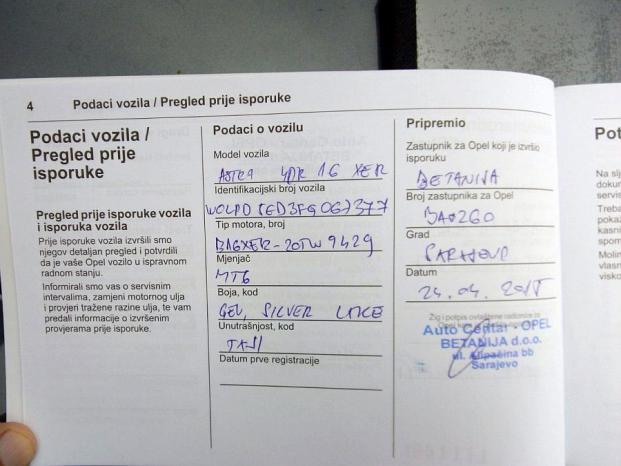 4 Podaci vozila / Pregled prije isporuke
Podaci vozila /
Pregled prije
isporuke
Pregled prije isporuke vozila
i isporuka vozila
Prije isporuke vozila izvršili smo
njegov detaljan pregled i potvrdili
da je vaše Opel vozilo u ispravnom
radnom stanju.
Informirali smo vas o servisnim
intervalima, zamjeni motornog ulja
i provjeri tražene razine ulja, te vam
predali informacije o izvršenim
provjerama prije isporuke.
Podaci o vozilu
Model vozila
ASTRA 4DR 16 XER
Identifikacijski broj vozila
Tip motora, broj
Mjenjač
MT6
Boja, kod
GEV, SILVER LAKE
Unutrašnjost, kod
TAJI
Datum prve registracije
Pripremio
Zastupnik za Opel koji je izvršio
isporuku
BETANIJA
Broj zastupnika za Opel
BA0260
Grad
SARAJEVO
Datum
24.04.
Žig i potpis ovlaštene radionice za
Auto Centar - OPEL
BETANIJA d.o.o.
ul. Alipašina bb
Sarajevo
Pot
Na slj
dokum
servis
Treba
pokaz
kasni
spom
Molim
vlasn
visko